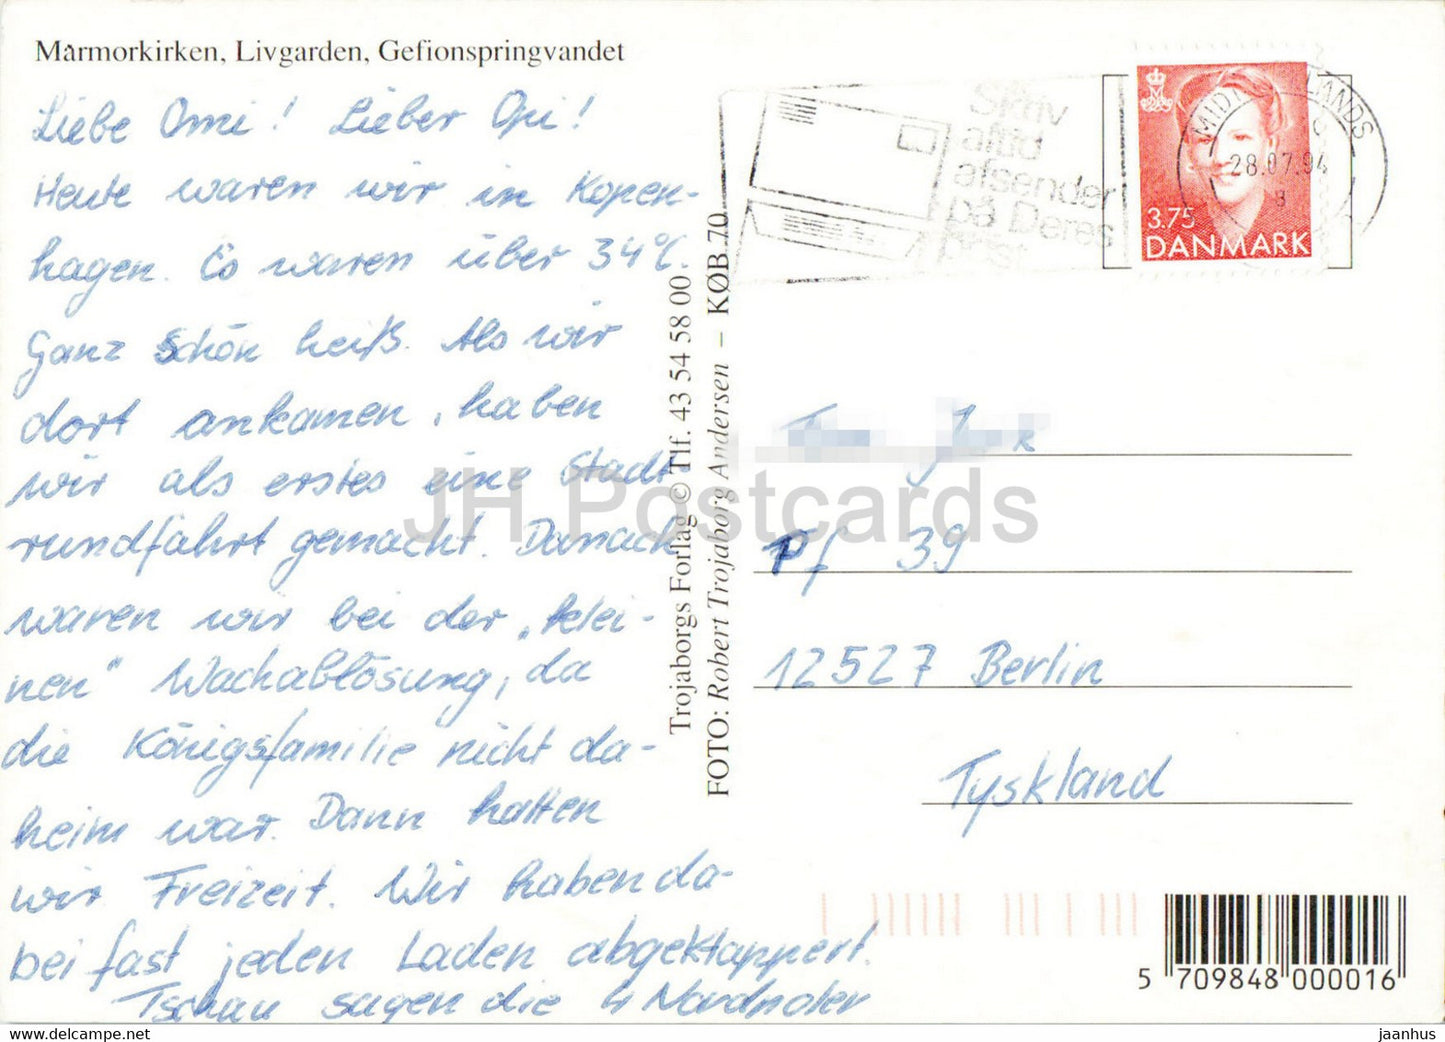 Marmorkirken, Livgarden, Gefionspringvandet
Liebe Omi! Lieber Opi!
Heute waren wir in Kopen-
hagen. Es waren über 34°C.
Ganz schön heiß. Als wir
dort ankamen, haben
wir als erstes eine Stadt-
rundfahrt gemacht. Danach
waren wir bei der „klei-
nen“ Wachablösung, da
die Königsfamilie nicht da-
heim war. Dann hatten
wir Freizeit. Wir haben da-
bei fast jeden Laden abgeklappert.
Tschau sagen die 4 Nordpoler
Trojaborgs Forlag © Tlf. 43 54 58 00
FOTO: Robert Trojaborg Andersen – KØB 70
Skriv
altid
afsender
på Deres
post
LANDS
28.07.94
3.75
DANMARK
Pf 39
12527 Berlin
Tyskland
JH Postcards
5 709848 000016
jaanhus © www.delcampe.net